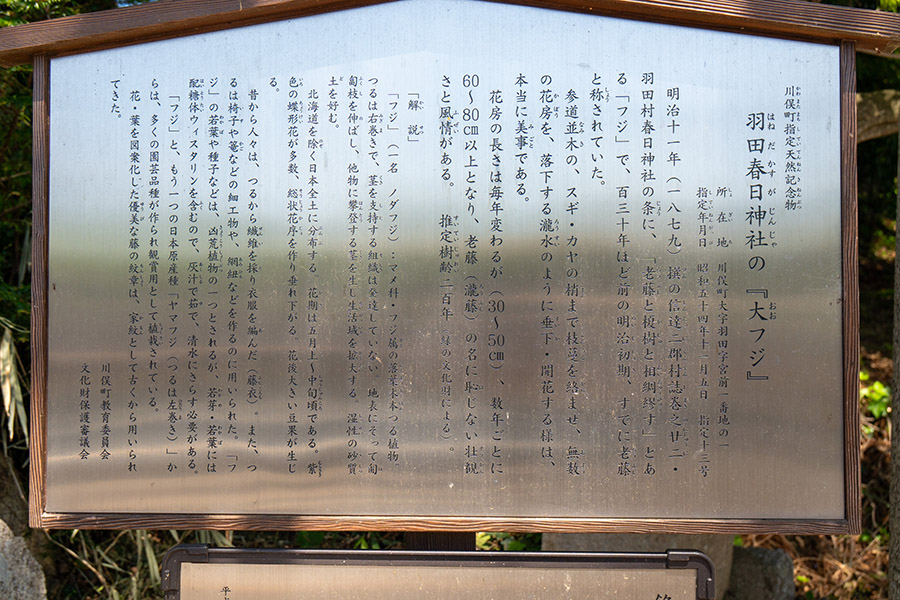 川俣町指定天然記念物
羽田春日神社の『大フジ』
所在地 川俣町大字羽田字宮前一番地の一
指定年月日 昭和五十四年十二月五日 指定十三号
明治十一年(一八七九)撰の信達二郡村誌巻之廿二・
羽田村春日神社の条に、「老藤と榎樹と相綢繆す」とあ
る「フジ」で、百三十年ほど前の明治初期、すでに老藤
と称されていた。
参道並木の、スギ・カヤの梢まで枝蔓を絡ませ、無数
の花房を、落下する瀧水のように垂下・開花する様は、
本当に美事である。
花房の長さは毎年変わるが(30~50㎝)、数年ごとに
60~80㎝以上となり、老藤(瀧藤)の名に恥じない壮観
さと風情がある。 推定樹齢二百年(緑の文化財による)。
「解説」
「フジ」(一名 ノダフジ):マメ科・フジ属の落葉木本のつる植物。
つるは右巻きで、茎を支持する組織は発達していない。地表にそって匍
匐枝を伸ばし、他物に攀登する茎を生し生活域を拡大する。湿性の砂質
土を好む。
北海道を除く日本全土に分布する。花期は五月上~中旬頃である。紫
色の蝶形花が多数、総状花序を作り垂れ下がる。花後大きい豆果が生じ
る。
昔から人々は、つるから繊維を採り衣服を編んだ(藤衣)。また、つ
るは椅子や篭などの細工物や、網紐などを作るのに用いられた。「フ
ジ」の若葉や種子などは、凶荒植物の一つとされるが、若芽・若葉には
配糖体ウィスタリンを含むので、灰汁で茹で、清水にさらす必要がある。
「フジ」と、もう一つの日本原産種「ヤマフジ(つるは左巻き)」か
らは、多くの園芸品種が作られ観賞用として植栽されている。
花・葉を図案化した優美な藤の紋章は、家紋として古くから用いられ
てきた。
川俣町教育委員会
文化財保護審議会